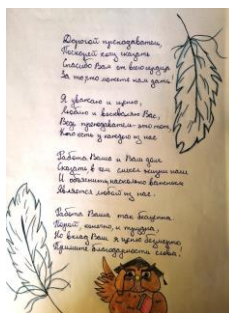 Дорогой преподаватель,
Последней хочу сказать
Спасибо Вам от всего сердца
За то, что можете нам дать!
Я уважаю и ценю,
Люблю и восхваляю Вас,
Ведь преподаватель - это тот,
Кто есть у каждого из нас.
Работа Ваша и Ваш долг
Сказать в чем смысл жизни нам
И объяснить насколько важным
Является любой из нас.
Работа Ваша так бесценна.
Порой, конечно, и трудна,
Но вклад Ваш я ценю безмерно,
Примите благодарности слова!